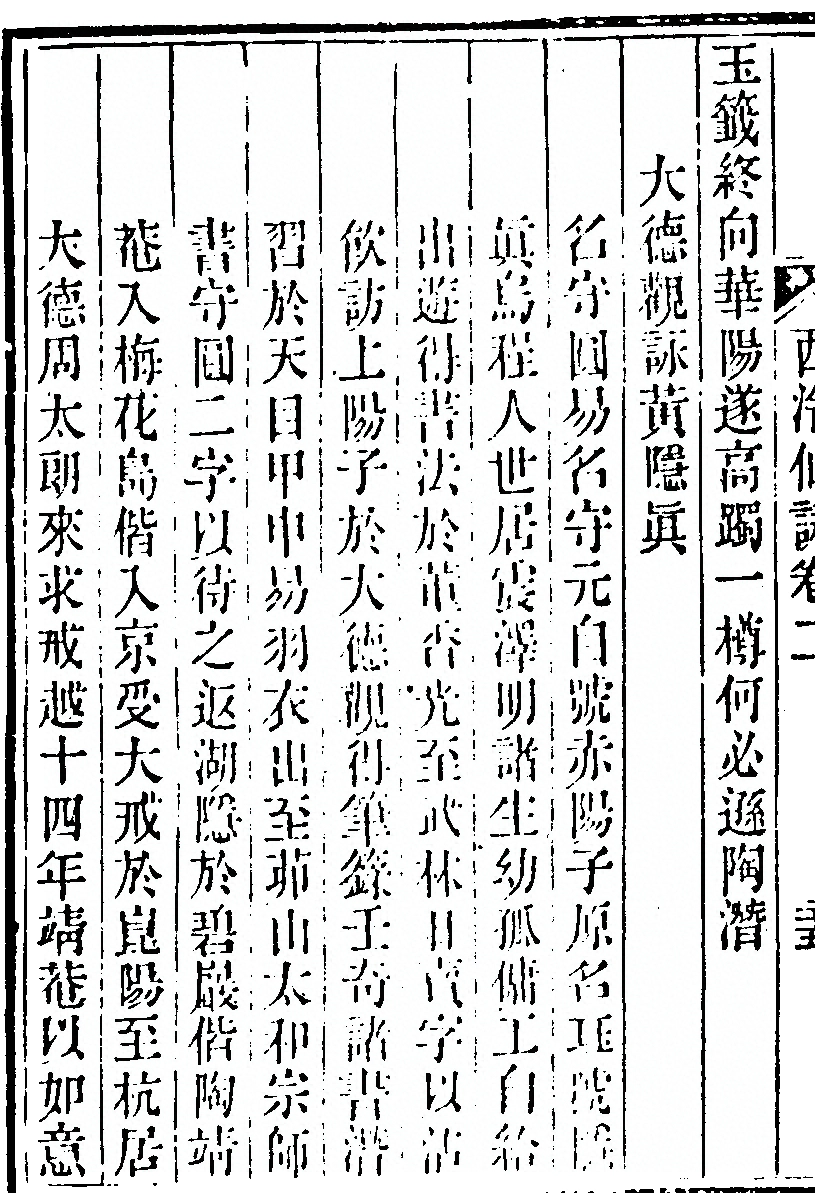 西泠仙詠卷二
玉籤終向華陽遂高躅一樽何必遜陶潛
大德觀詠黃隱眞
名守圓易名守元自號赤陽子原名珏號隱
眞烏程人世居震澤明諸生幼孤傭工自給
出遊得書法於董香光至武林日賣字以沽
飲訪上陽子於大德觀得筆籙壬奇諸書潛
習於天目甲申易羽衣出至茆山太和宗師
書守圓二字以待之返湖隱於碧巖偕陶靖
菴入梅花島偕入京受大戒於崑陽至杭居
大德周太朗來求戒越十四年靖菴以如意